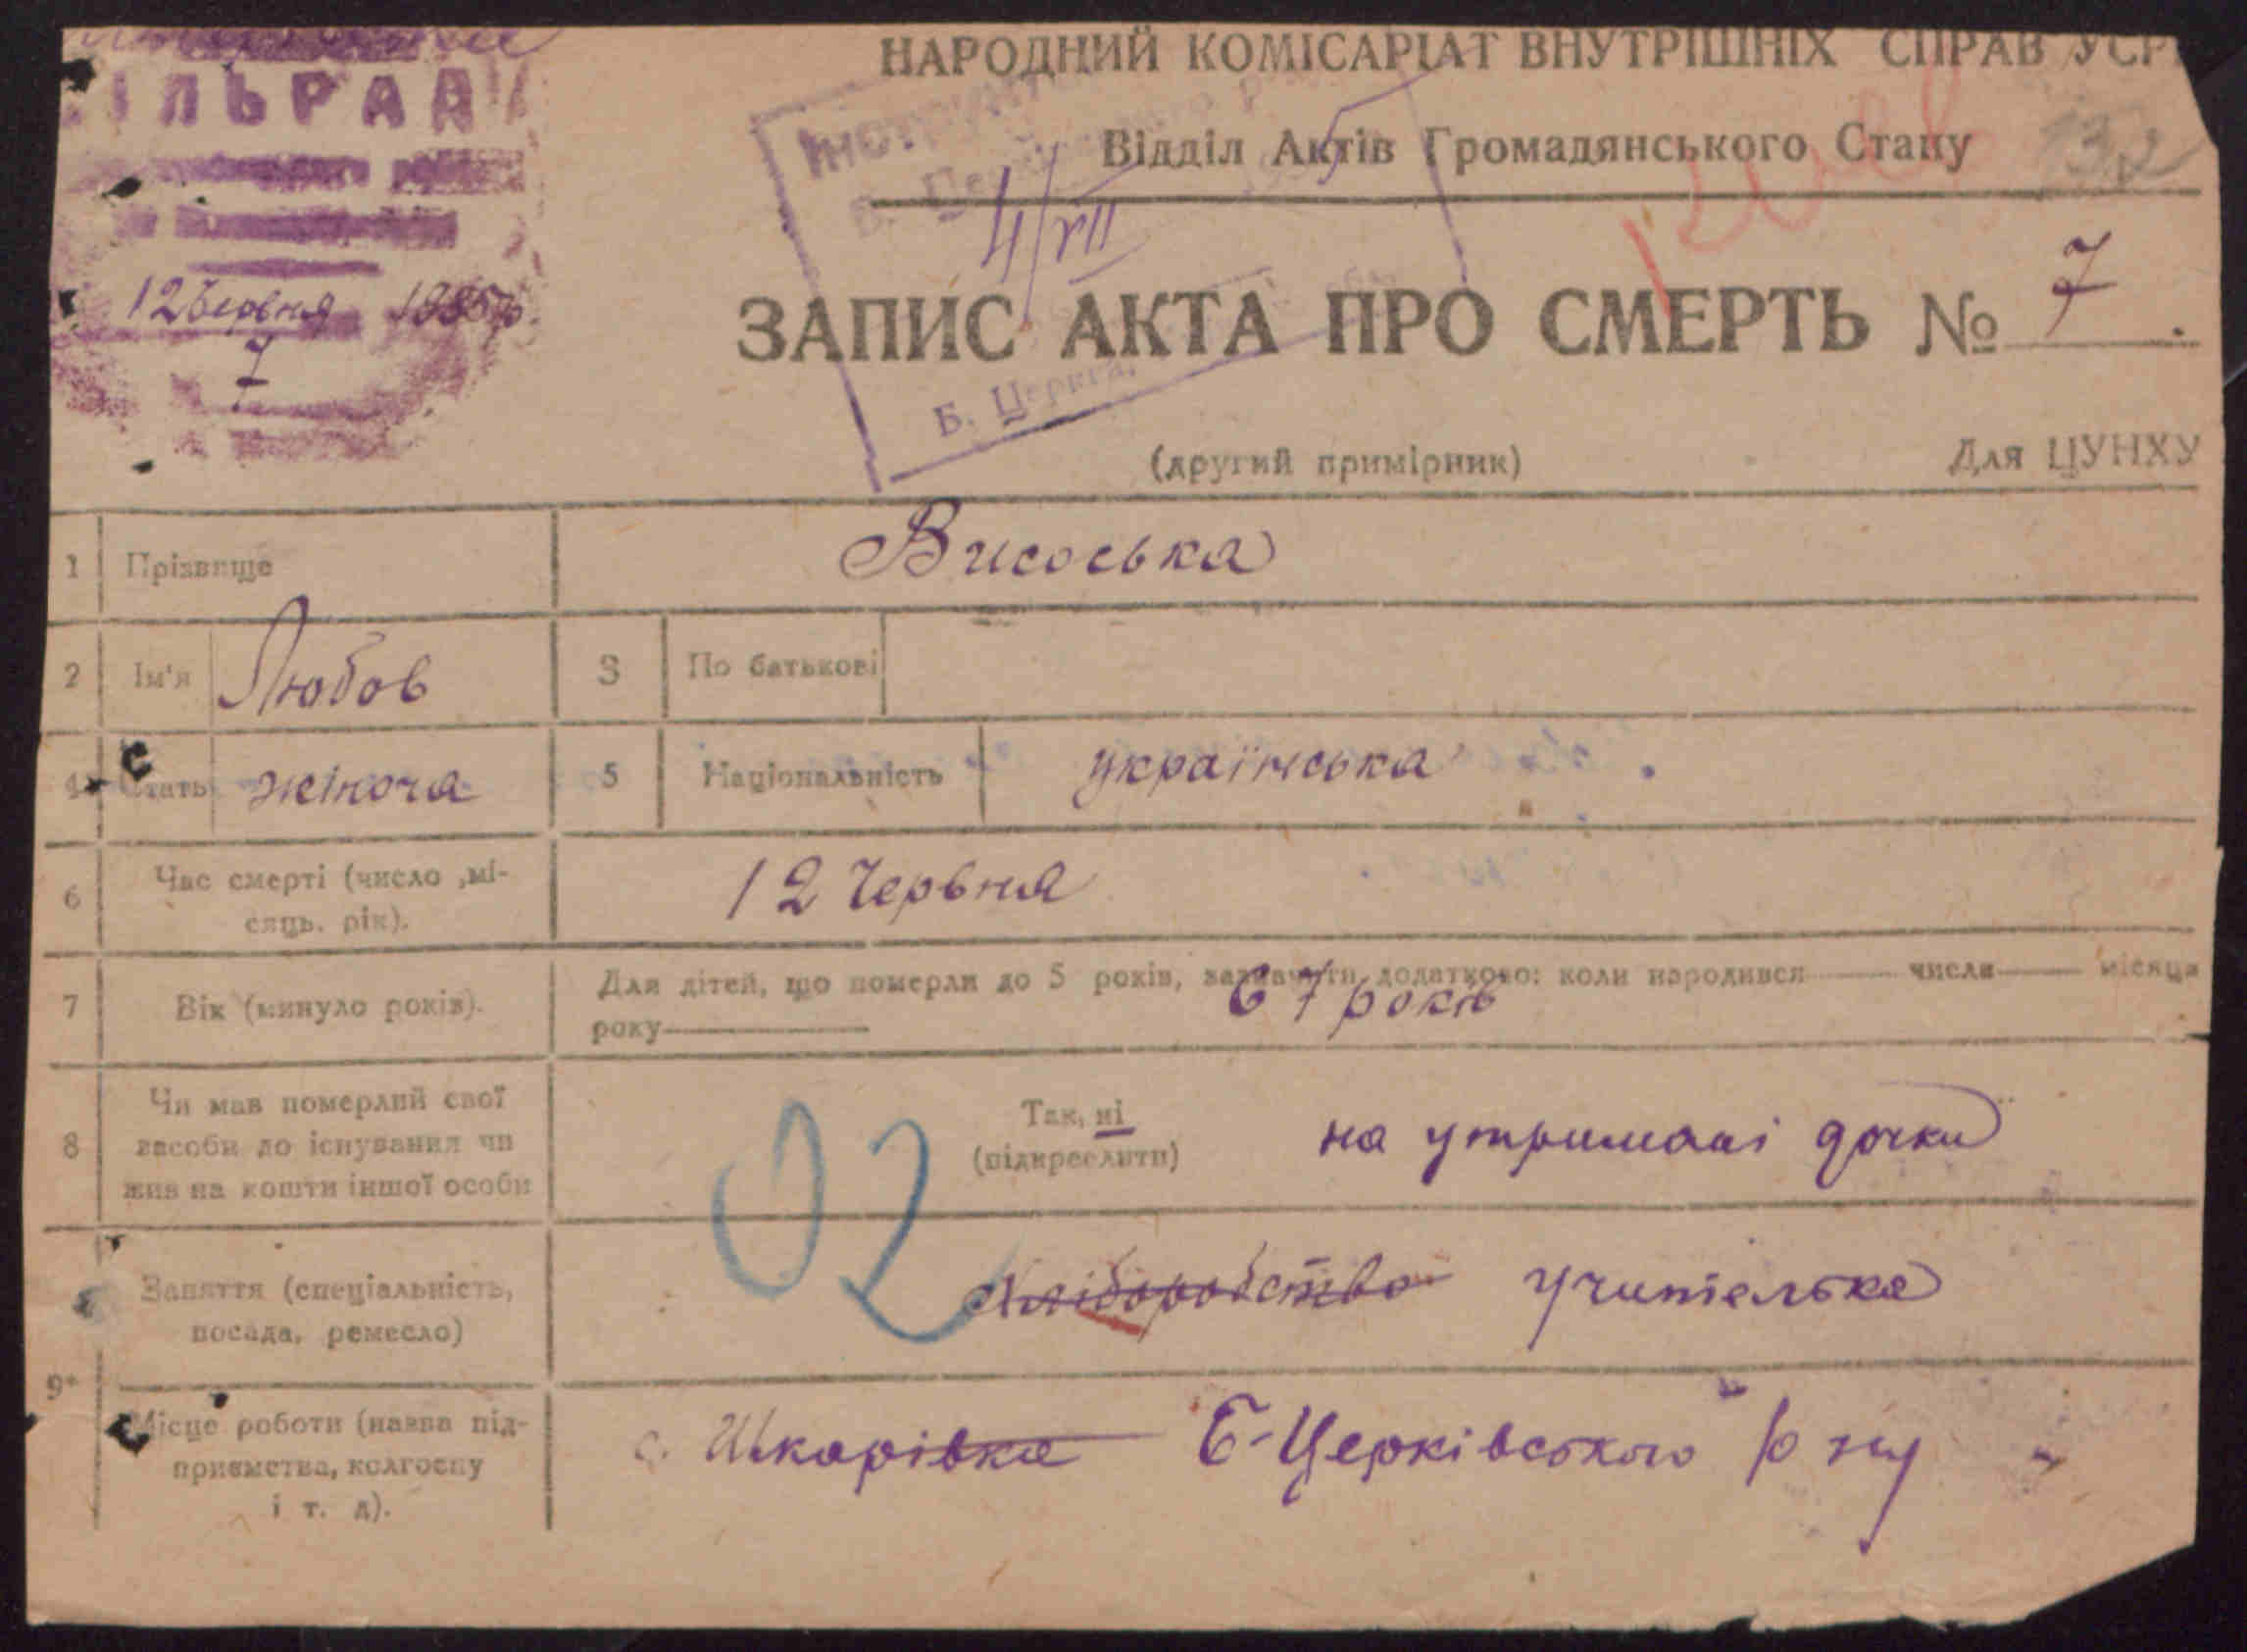 НАРОДНИЙ КОМІСАРІАТ ВНУТРІШНІХ СПРАВ УСР
Відділ Актів Громадянського Стану
ІЛЬРАД
4/VII
12 Червня 1935р.
7
ЗАПИС АКТА ПРО СМЕРТЬ № 7.
Б. Церква,
(другий примірник)
Для ЦУНХУ
1 Прізвище Висоська
2 Ім'я Любов 3 По батькові
4 Стать жіноча 5 Національність українська
6 Час смерті (число ,мі-
сяць. рік).
12 Червня
7 Вік (минуло років).
Для дітей, що померли до 5 років, зазначити додатково: коли народився числа місяця
року
67 років
8 Чи мав померлий свої
засоби до існування чи
жив на кошти іншої особи
Так, ні
(підкреслити)
на утримані дочки
02
9* Заняття (спеціальність,
посада, ремесло)
Хліборобство учителька
Місце роботи (назва під-
приємства, колгоспу
і т. д).
с. Шкарівка Б-Церківського р ну